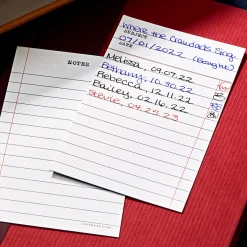 Where the Crawdads Sing
07/01/2022 (Bought)
DATE
Melissa, 09.07.22
Bethany, 10.30.22
Rebecca, 12.11.22
Bailey, 02.16.22
Stevie, 04.25.23
NOTES